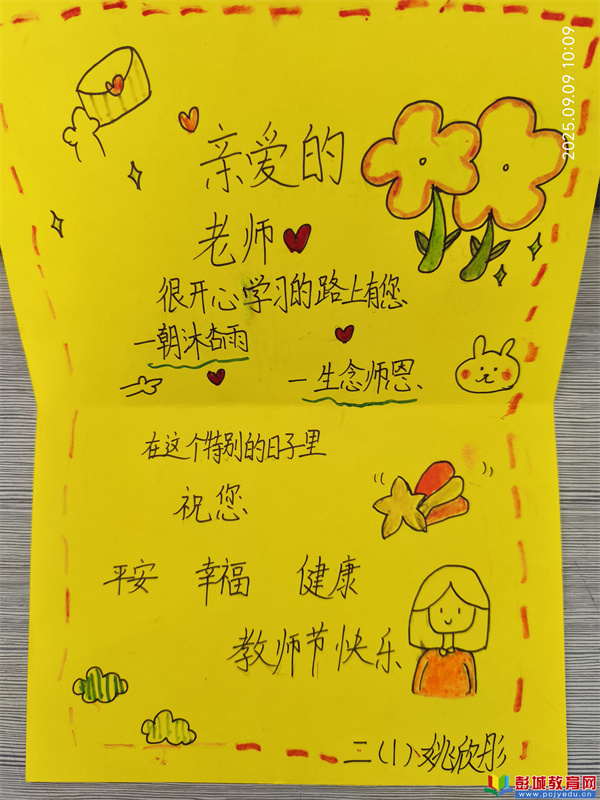 2025.09.09 10:09
亲爱的
老师
很开心学习的路上有您
一朝沐杏雨
一生念师恩、
在这个特别的日子里
祝您
平安 幸福 健康
教师节快乐
二(1)姚欣彤
彭城教育网
www.pcjyedu.cn